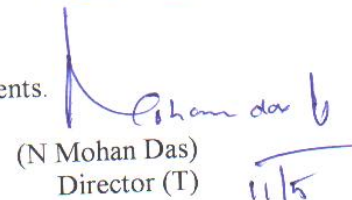 ents.
Mohan das
(N Mohan Das)
Director (T)
11/5